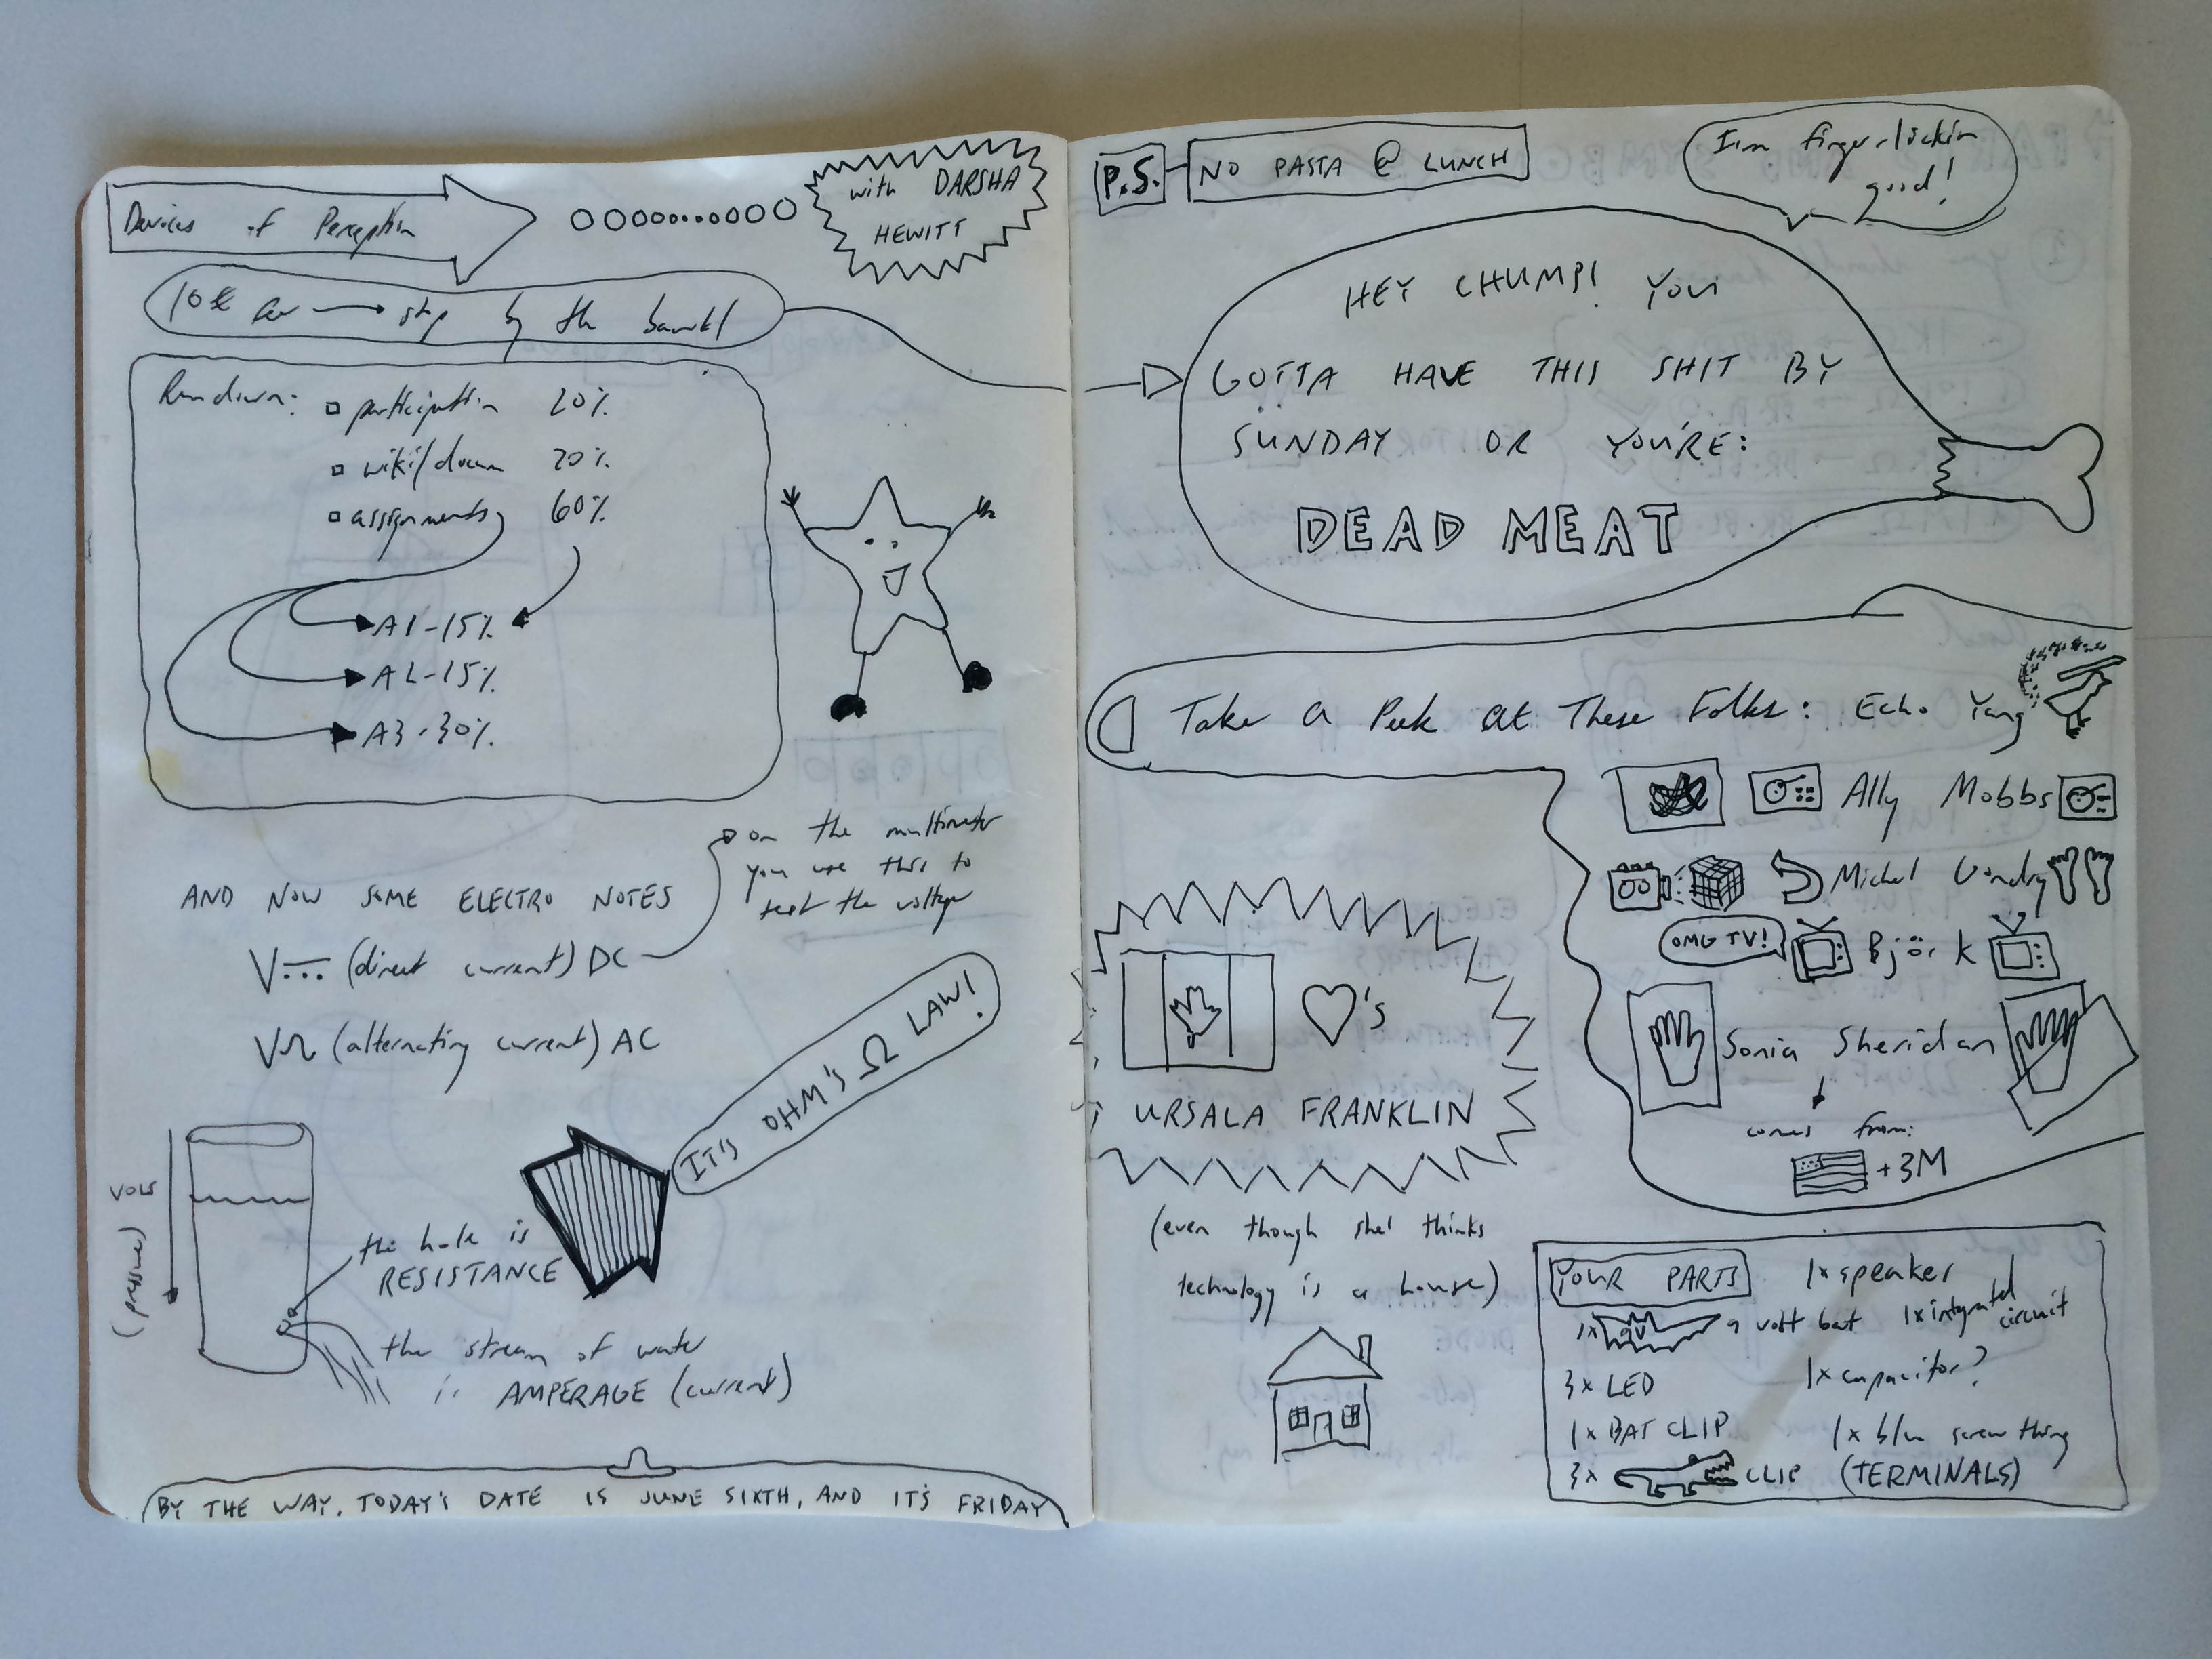 Devices of Perception
with DARSHA
HEWITT
10€ fee → stop by the bank!
Rundown:
participation 20%
wiki/docum 20%
assignments 60%
A1-15%
A2-15%
A3-30%
on the multimeter
you use this to
test the voltage
AND NOW SOME ELECTRO NOTES
V (direct current) DC
V (alternating current) AC
IT'S OHM'S Ω LAW!
VOLTS
(pressure)
the hole is
RESISTANCE
the stream of water
is AMPERAGE (current)
BY THE WAY, TODAY'S DATE IS JUNE SIXTH, AND IT'S FRIDAY
P.S. NO PASTA @ LUNCH
I'm finger-lickin
good!
HEY CHUMP! YOU
GOTTA HAVE THIS SHIT BY
SUNDAY OR YOU'RE:
DEAD MEAT
Take a Peek at These Folks: Echo Yang
Ally Mobbs
Michel Gondry
OMG TV!
Björk
Sonia Sheridan
comes from:
+3M
♡'s
URSALA FRANKLIN
(even though she thinks
technology is a house)
YOUR PARTS
1x 9V 9 volt bat
3x LED
1x BAT CLIP
3x CLIP
1x speaker
1x integrated
circuit
1x capacitor?
1x blue screw thing
(TERMINALS)